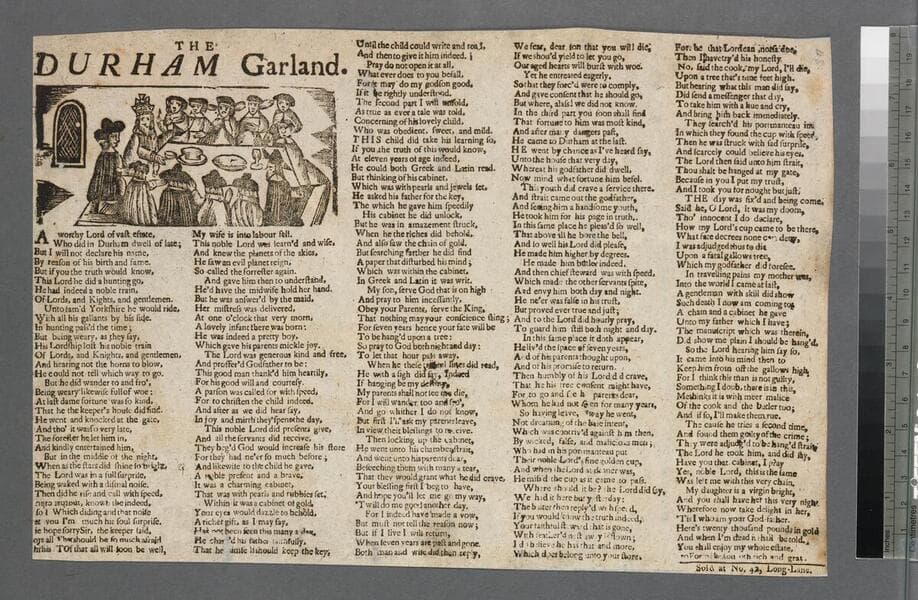 THE
DURHAM Garland.
A worthy Lord of vast estate,
Who did in Durham dwell of late;
But I will not declare his name,
By reason of his birth and fame.
But if you the truth would know,
This Lord he did a hunting go,
He had indeed a noble train,
Of Lords, and Kights, and gentlemen.
Unto fam'd Yorkshire he would ride,
With all his gallants by his side.
In hunting pass'd the time;
But being weary, as they say,
His Lordship lost his noble train
Of Lords, and Knights, and gentlemen,
And hearing not the horns to blow,
He could not tell which way to go.
But he did wander to and fro',
Being weary likewise full of woe:
At last dame fortune was so kind,
That he the keeper's house did find.
He went and knocked at the gate,
And tho' it was so very late,
The forester he let him in,
And kindly entertained him,
But in the middle of the night,
When as the stars did shine so bright,
The Lord was in a full surprise,
Being waked with a dismal noise.
Then did he rise and call with speed,
know indeed,
Which diding and that noise
you I'm much his soul surprise.
he hope sorry Sir, the keeper said,
all should be so much afraid
that all will soon be well,
My wife is in labour fell.
This noble Lord was learn'd and wise,
And knew the planets of the skies.
He saw an evil planet reign,
So called the forrester again.
And gave him then to understand,
He'd have the midwife hold her hand.
But he was answer'd by the maid,
Her mistress was delivered.
At one o'clock that very morn,
A lovely infant there was born:
He was indeed a pretty boy,
Which gave his parents mickle joy.
The Lord was generous kind and free,
And proffer'd Godfather to be:
This good man thank'd him heartily,
For his good will and courtesy.
A parson was called for with speed,
For to christen the child indeed,
And after as we did hear say,
In joy and mirth they spent the day,
This noble Lord did presents give,
And all the servants did receive,
They beg'd God would increase his store
For they had ne'er so much before;
And likewise to the child he gave,
A noble present and a brave,
It was a charming cabinet,
That was with pearls and rubbies set,
Within it was a cabinet of gold,
Your eyes would dazzle to behold.
A richer gift, as I may say,
Has not been seen this many a day,
He charg'd his father faithfully,
That he himself should keep the key,
Until the child could write and read,
And then to give it him indeed.
Pray do not open it at all,
What ever does to you befall.
For it may do my godson good,
If it be rightly understood.
The second part I will unfold,
As true as ever a tale was told,
Concerning of his lovely child.
Who was obedient, sweet, and mild.
THIS child did take his learning so,
If you the truth of this would know,
At eleven years of age indeed,
He could both Greek and Latin read.
But thinking of his cabinet.
Which was with pearls and jewels set.
He asked his father for the key,
The which he gave him speedily
His cabinet he did unlock,
But he was in amazement struck,
When he the riches did behold.
And also saw the chain of gold.
But searching farther he did find
A paper that disturbed his mind;
Which was within the cabinet.
In Greek and Latin it was writ.
My son, serve God that is on high
And pray to him incessantly.
Obey your Parents, serve the King,
That nothing may your conscience sting;
For seven years hence your fate will be
To be hang'd upon a tree:
So pray to God both night and day:
To let that hour pass away.
When he these lines did read,
He with a sigh did say, Indeed
If hanging be my destiny,
My parents shall not see me die,
For I will wander, too and fro',
And go whither I do not know,
But first I'll ask my parents leave,
In view their blessings to receive.
Then locking up the cabinet,
He went unto his chamber strait,
And went unto his parents dear,
Beseeching them with many a tear,
That they would grant what he did crave,
Your blessing first I beg to have,
And hope you'll let me go my way,
'Twill do me good another day,
For I indeed have made a vow,
But must not tell the reason now;
But if I live I will return,
When seven years are past and gone.
Both man and wife did then reply,
We fear, dear son that you will die;
If we shou'd yield to let you go,
Our aged hearts will burst with woe.
Yet he entreated eagerly,
So that they forc'd were to comply,
And gave consent that he should go,
But where, alas! we did not know.
In the third part you soon shall find
That fortune to him was most kind,
And after many dangers past,
He came to Durham at the last.
HE went by chance as I've heard say,
Unto the house that very day,
Whereat his godfather did dwell.
Now mind what fortune him befel.
This youth did crave a service there.
And strait came out the godfather,
And seeing him a handsome youth,
He took him for his page in truth,
In this same place he pleas'd so well,
That above all he bore the bell,
And so well his Lord did please,
He made him higher by degrees.
He made him butler indeed.
And then chief steward was with speed.
Which made the other servants spite,
And envy him both day and night.
He ne'er was false in his trust,
But proved ever true and just;
And to the Lord did hourly pray,
To guard him still both night and day.
In this same place it doth appear,
He liv'd the space of seven years,
And of his parents thought upon,
And of his promise to return.
Then humbly of his Lord did crave,
That he his free consent might have,
For to go and see his parents dear,
Whom he had not seen for many years,
So having leave, away he went,
Not dreaming of the base intent,
Which was contriv'd against him then,
By wicked, false, and malicious men;
Who had in his portmanteau put
Their noble Lord's fine golden cup,
And when the Lord at dinner was,
He miss'd the cup as it came to pass.
Where should it be? the Lord did say,
We had it here but yesterday;
The butler then reply'd with speed,
If you would know the truth indeed,
Your faithful steward that is gone,
With feather'd nest away is flown;
I do believe he has that and more,
Which does belong unto your store.
For he that Lordean nonsense,
Then I have try'd his honesty.
No, said the cook, my Lord, I'll die,
Upon a tree that's nine feet high.
But hearing what this man did say,
Did send a messenger that day,
To take him with a hue and cry,
And bring him back immediately.
They search'd his portmanteau in
In which they found the cup with speed,
Then he was struck with sad surprise,
And scarcely could believe his eyes.
The Lord then said unto him strait,
Thou shalt be hanged at my gate,
Because in you I put my trust,
And I took you for nought but just,
THE day was fix'd and being come,
Said he, O Lord, it was my doom,
Tho' innocent I do declare,
How my Lord's cup came to be there,
What face decrees none can deny,
I was adjudged thus to die
Upon a fatal gallows tree,
Which my godfather did foresee.
In travelling pains my mother was,
Into the world I came at last,
A gentleman with skill did show
Such death I now am coming to:
A chain and a cabinet he gave
Unto my father which I have;
The manuscript which was therein,
Did show me plain I should be hang'd.
So the Lord hearing him say so,
It came into his mind then to
Keep him from off the gallows high,
For I think this man is not guilty,
Something I doubt there is in this,
Methinks it is with meer malice
Of the cook and the butler too;
And if so, I'll make them rue.
The cause he tries a second time,
And found them guilty of the crime;
They were adjudg'd to be hang'd strait
The Lord he took him, and did say,
Have you that cabinet, I pray
Yes, noble Lord, this is the same
Was left me with this very chain.
My daughter is a virgin bright,
And you shall have her this very night
Wherefore now take delight in her,
'Tis I who am your God-father.
Here's twenty thousand pounds in gold
And when I'm dead it shall be told,
You shall enjoy my whole estate,
rich and great.
Sold at No. 42, Long-Lane.